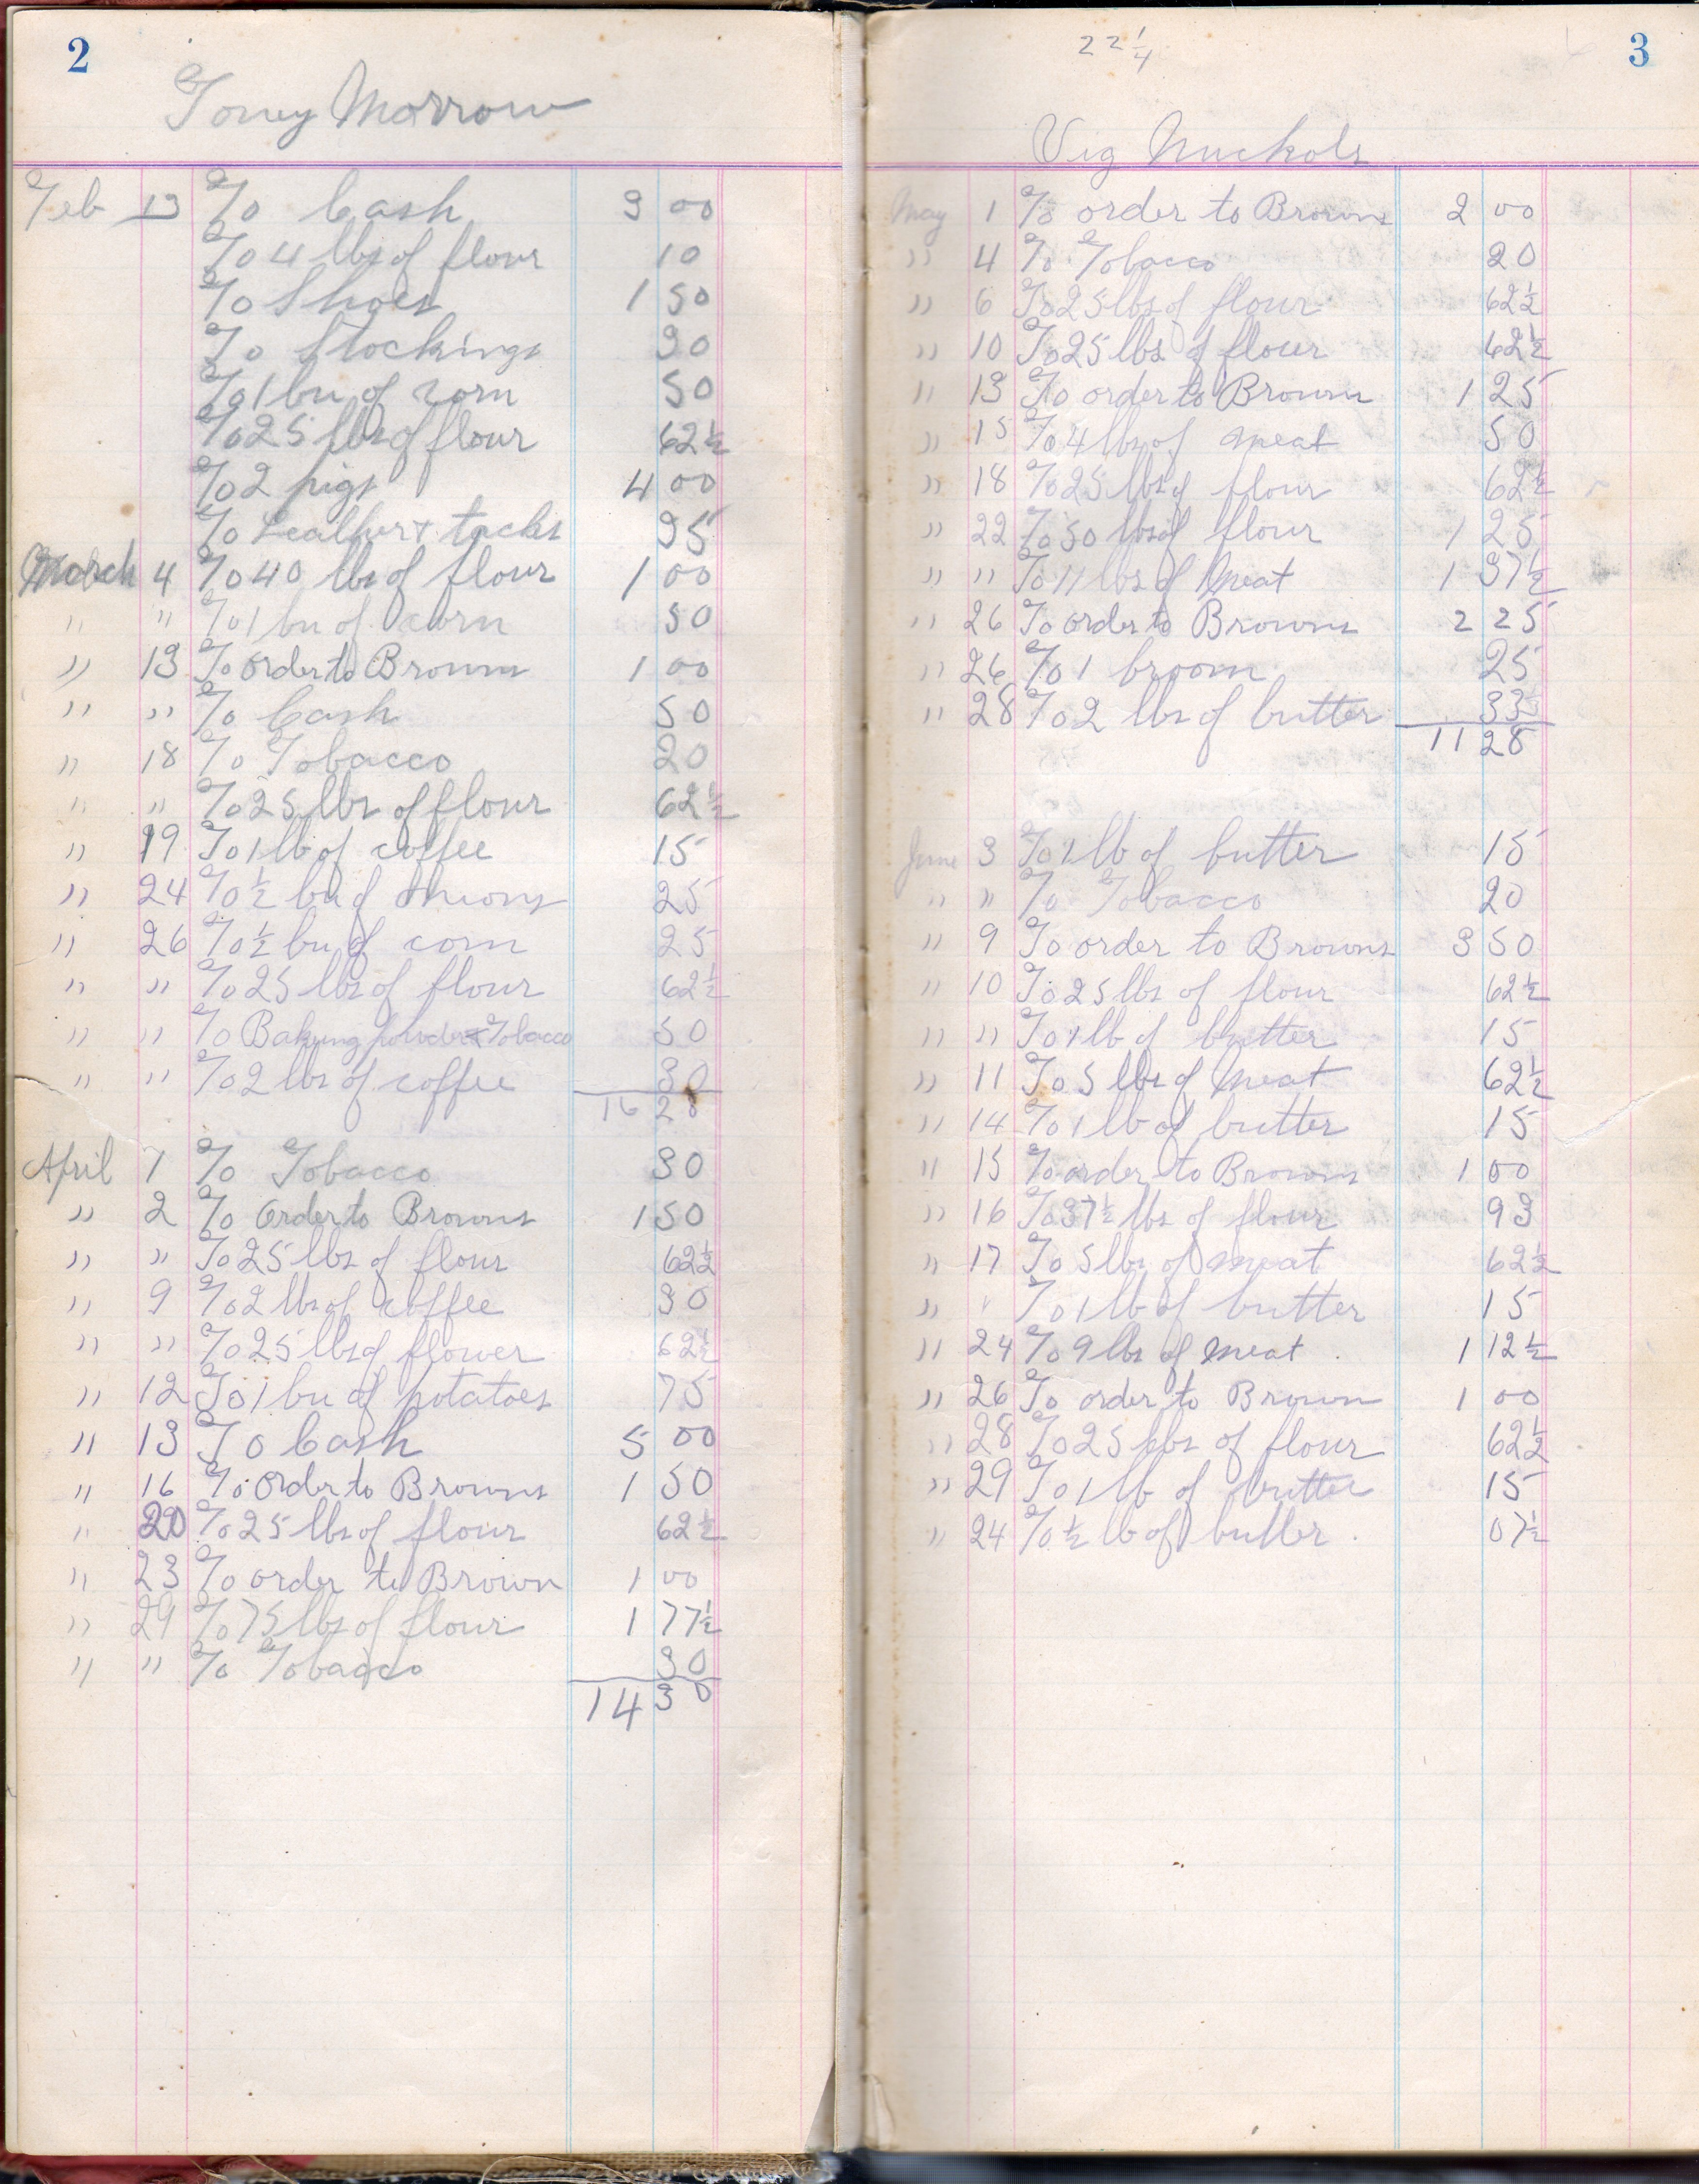 2
Toney Morrow
Feb 13 To Cash 3 00
To 4 lbs of flour 10
To Shoes 1 50
To Stockings 30
To 1 bu of corn 50
To 25 lbs of flour 62½
To 2 pigs 4 00
To Leather & tacks 35
March 4 To 40 lbs of flour 1 00
" " To 1 bu of corn 50
" 13 To order to Browns 1 00
" " To Cash 50
" 18 To Tobacco 20
" " To 25 lbs of flour 62½
" 19 To 1 lb of coffee 15
" 24 To ½ bu of Onions 25
" 26 To ½ bu of corn 25
" " To 25 lbs of flour 62½
" " To Baking powder & Tobacco 50
" " To 2 lbs of coffee 30
16 28
April 1 To Tobacco 30
" 2 To Order to Browns 1 50
" " To 25 lbs of flour 62½
" 9 To 2 lbs of coffee 30
" " To 25 lbs of flower 62½
" 12 To 1 bu of potatoes 75
" 13 To Cash 5 00
" 16 To Order to Browns 1 50
" 20 To 25 lbs of flour 62½
" 23 To order to Brown 1 00
" 29 To 75 lbs of flour 1 77½
" " To Tobacco 30
14 30
3
22¼
Vig Nuckols
May 1 To order to Browns 2 00
" 4 To Tobacco 20
" 6 To 25 lbs of flour 62½
" 10 To 25 lbs of flour 62½
" 13 To order to Browns 1 25
" 15 To 4 lbs of meat 50
" 18 To 25 lbs of flour 62½
" 22 To 50 lbs of flour 1 25
" " To 11 lbs of Meat 1 37½
" 26 To order to Browns 2 25
" 26 To 1 broom 25
" 28 To 2 lbs of butter 33
11 28
June 3 To 1 lb of butter 15
" " To Tobacco 20
" 9 To order to Browns 3 50
" 10 To 25 lbs of flour 62½
" " To 1 lb of butter 15
" 11 To 5 lbs of Meat 62½
" 14 To 1 lb of butter 15
" 15 To order to Browns 1 00
" 16 To 37½ lbs of flour 93
" 17 To 5 lbs of meat 62½
" " To 1 lb of butter 15
" 24 To 9 lbs of meat 1 12½
" 26 To order to Brown 1 00
" 28 To 25 lbs of flour 62½
" 29 To 1 lb of butter 15
" 24 To ½ lb of butter 07½